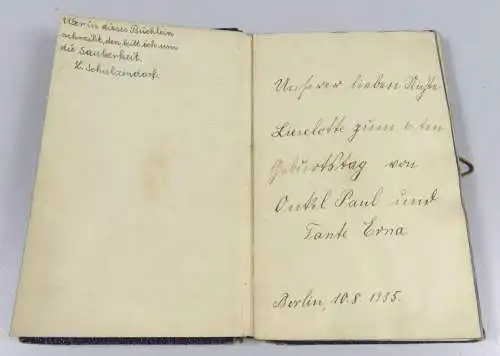 Wer in dieses Büchlein
schreibt, den bitt ich um
die Sauberkeit.
L. Schulzendorf.
Unserer lieben Nichte
Lieselotte zum 6. ten
Geburtstag von
Onkel Paul und
Tante Erna.
Berlin, 10.8.1935.